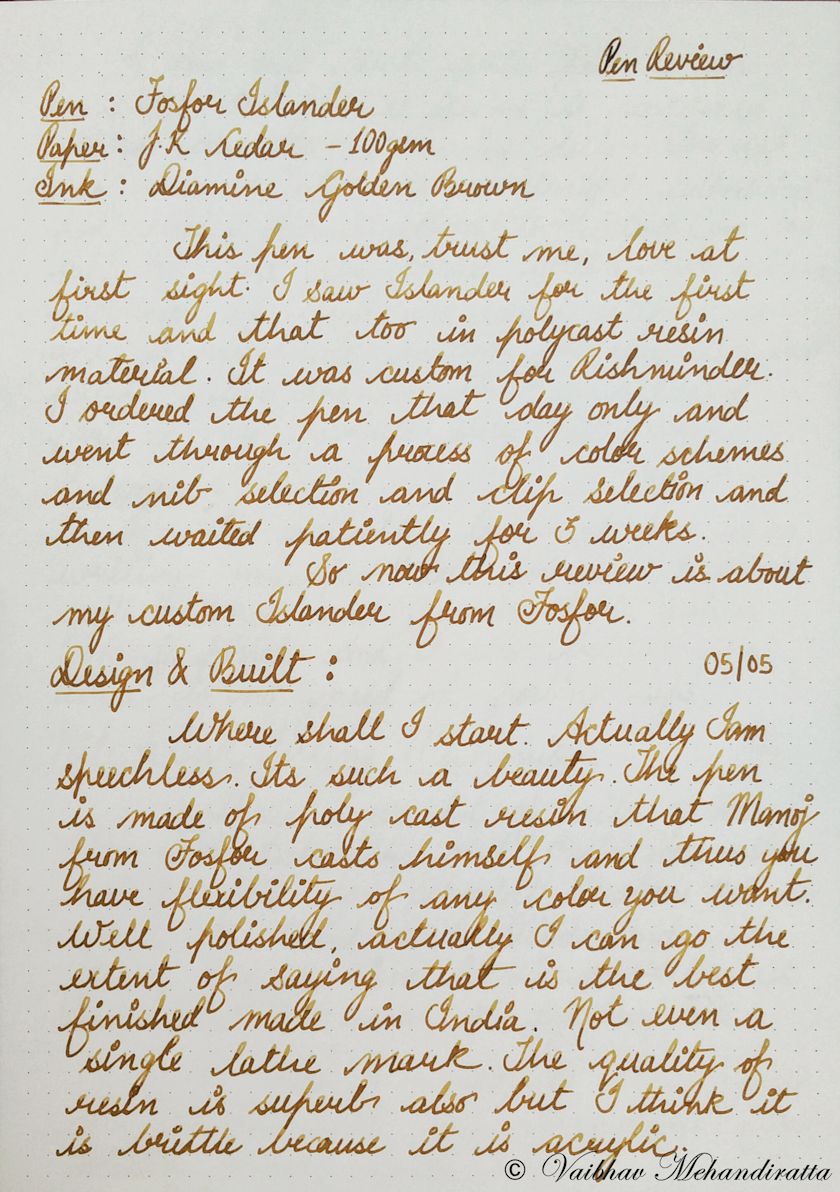 Pen Review
Pen : Fosfor Islander
Paper : J.K Cedar - 100gsm
Ink : Diamine Golden Brown
This pen was, trust me, love at
first sight. I saw Islander for the first
time and that too in polycast resin
material. It was custom for Rishminder.
I ordered the pen that day only and
went through a process of color schemes
and nib selection and clip selection and
then waited patiently for 3 weeks.
So now this review is about
my custom Islander from Fosfor.
Design & Built : 05/05
Where shall I start. Actually I am
speechless. Its such a beauty. The pen
is made of poly cast resin that Manoj
from Fosfor casts himself and thus you
have flexibility of any color you want.
Well polished, actually I can go the
extent of saying that is the best
finished made in India. Not even a
single lathe mark. The quality of
resin is superb also but I think it
is brittle because it is acrylic.
© Vaibhav Mehandiratta